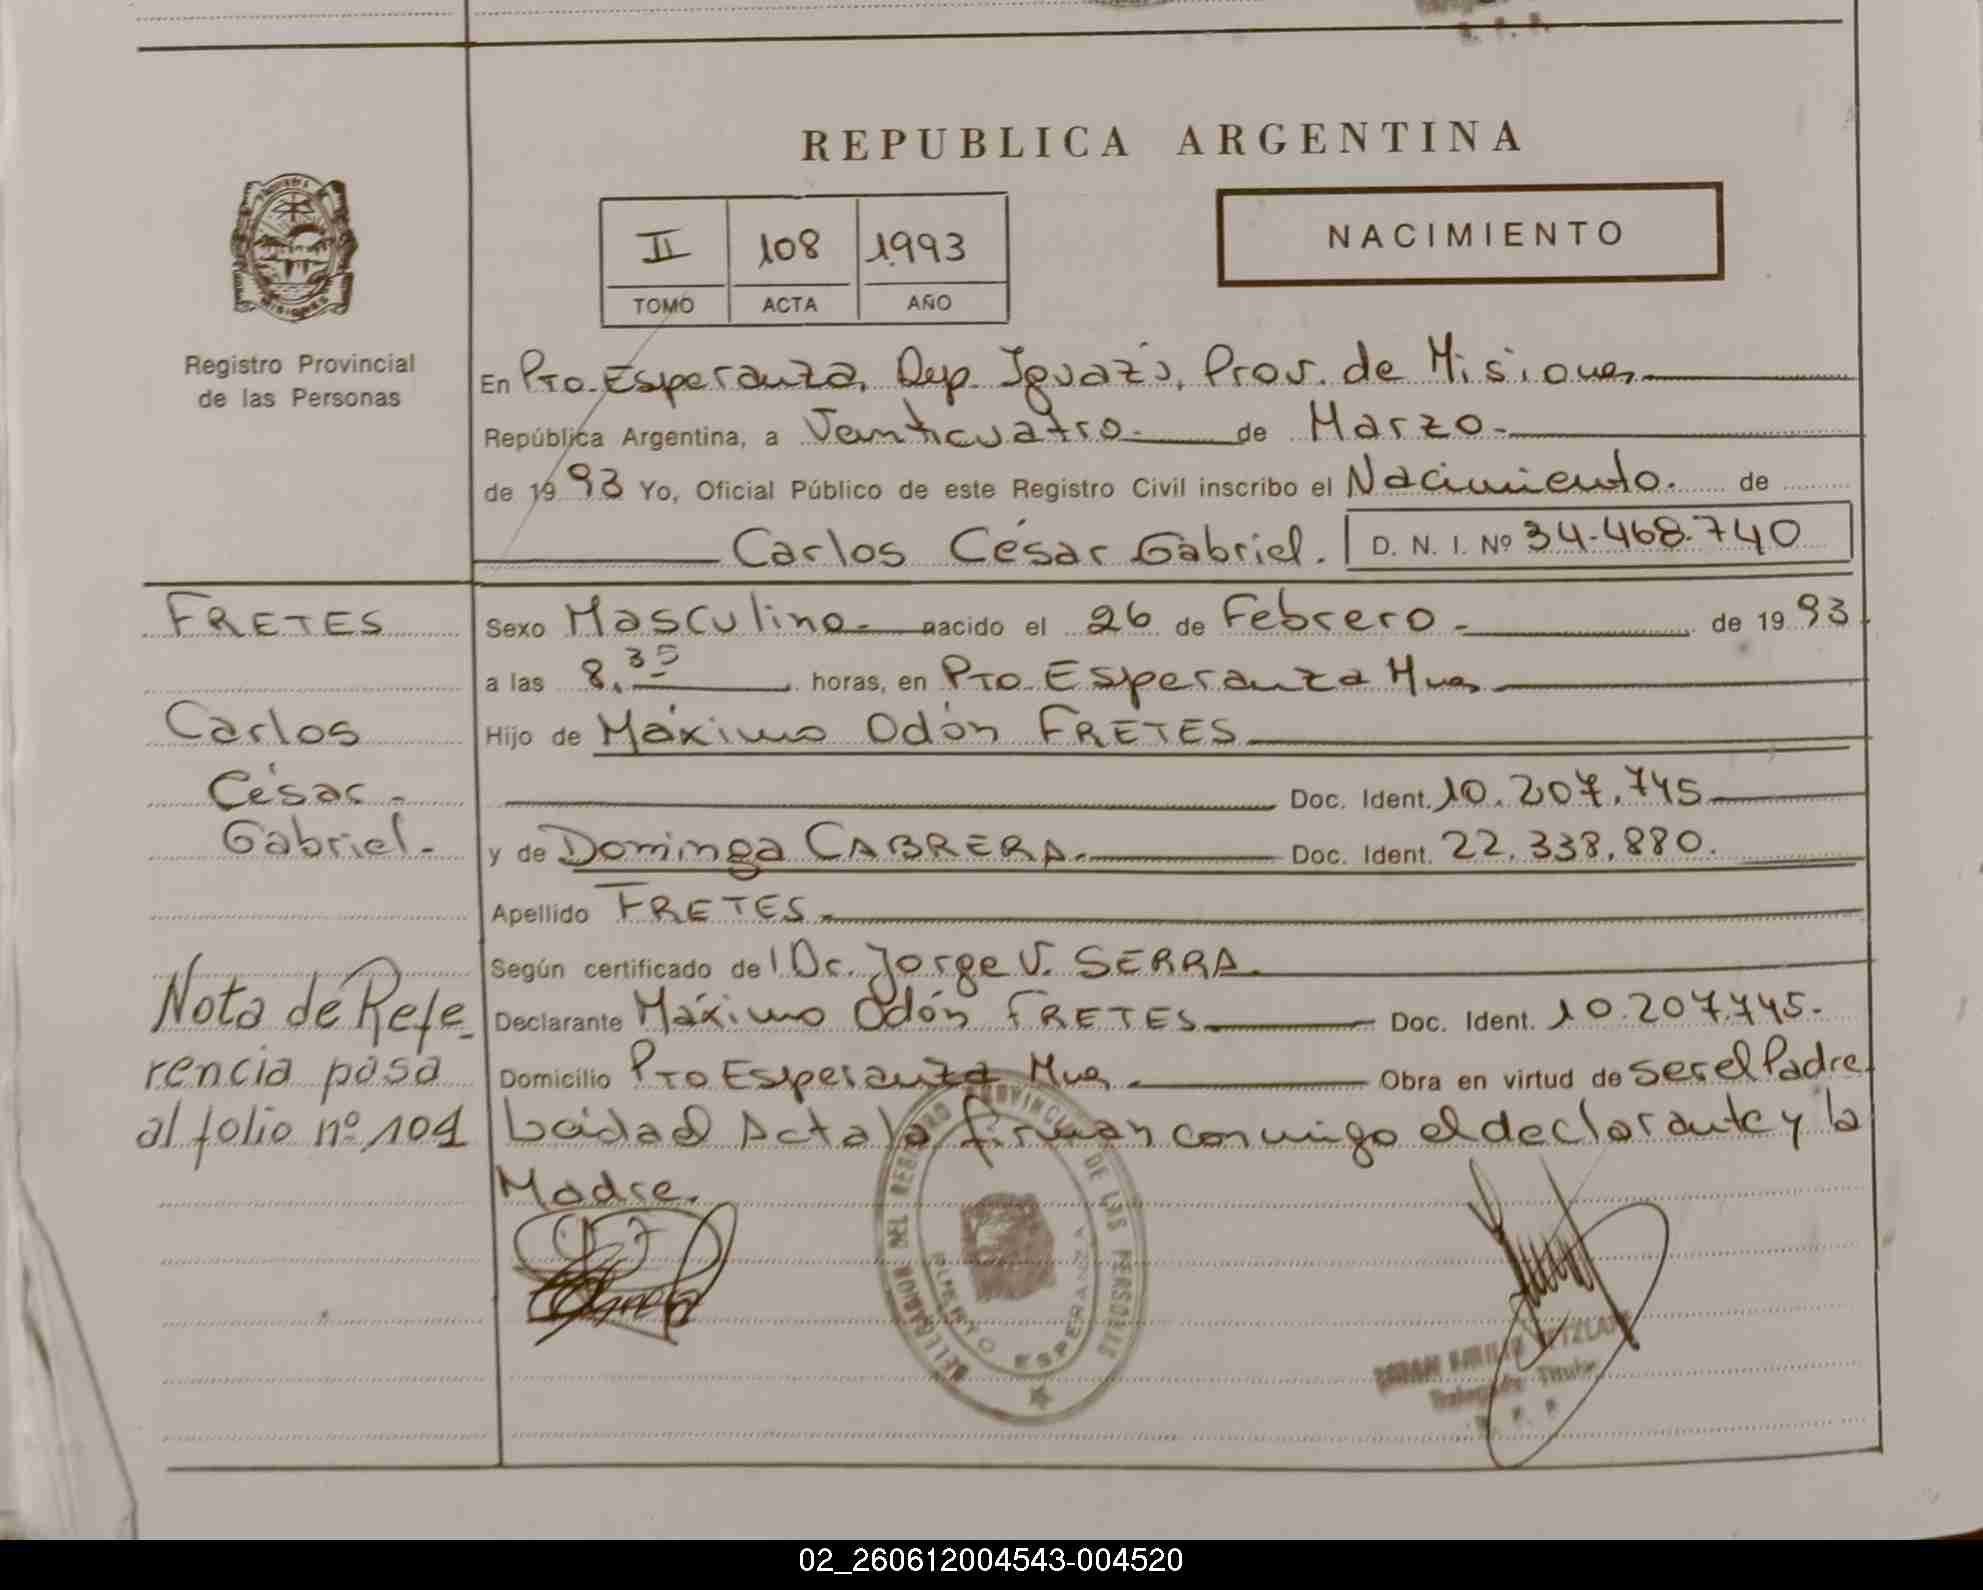 REPUBLICA ARGENTINA
NACIMIENTO
II 108 1993
TOMO ACTA AÑO
Registro Provincial
de las Personas
En Pto. Esperanza, Dep. Iguazú, Prov. de Misiones
República Argentina, a Veinticuatro de Marzo
de 1993 Yo, Oficial Público de este Registro Civil inscribo el Nacimiento. de
Carlos César Gabriel. D. N. I. Nº 34.468.740
FRETES
Carlos
César
Gabriel.
Nota de Refe-
rencia pasa
al folio nº 101
Sexo Masculino nacido el 26 de Febrero de 1993
a las 8,35 horas, en Pto Esperanza Mnes
Hijo de Máximo Odón FRETES
Doc. Ident. 10.207.745
y de Dominga CABRERA. Doc. Ident. 22.338.880.
Apellido FRETES.
Según certificado del Dr. Jorge V. SERRA.
Declarante Máximo Odón FRETES Doc. Ident. 10.207.745.
Domicilio Pto Esperanza Mnes Obra en virtud de ser el Padre
Leída el Acta la firman conmigo el declarante y la
Madre.
DEL REGISTRO PROVINCIAL DE LAS PERSONAS
PUERTO ESPERANZA
Titular
02_260612004543-004520